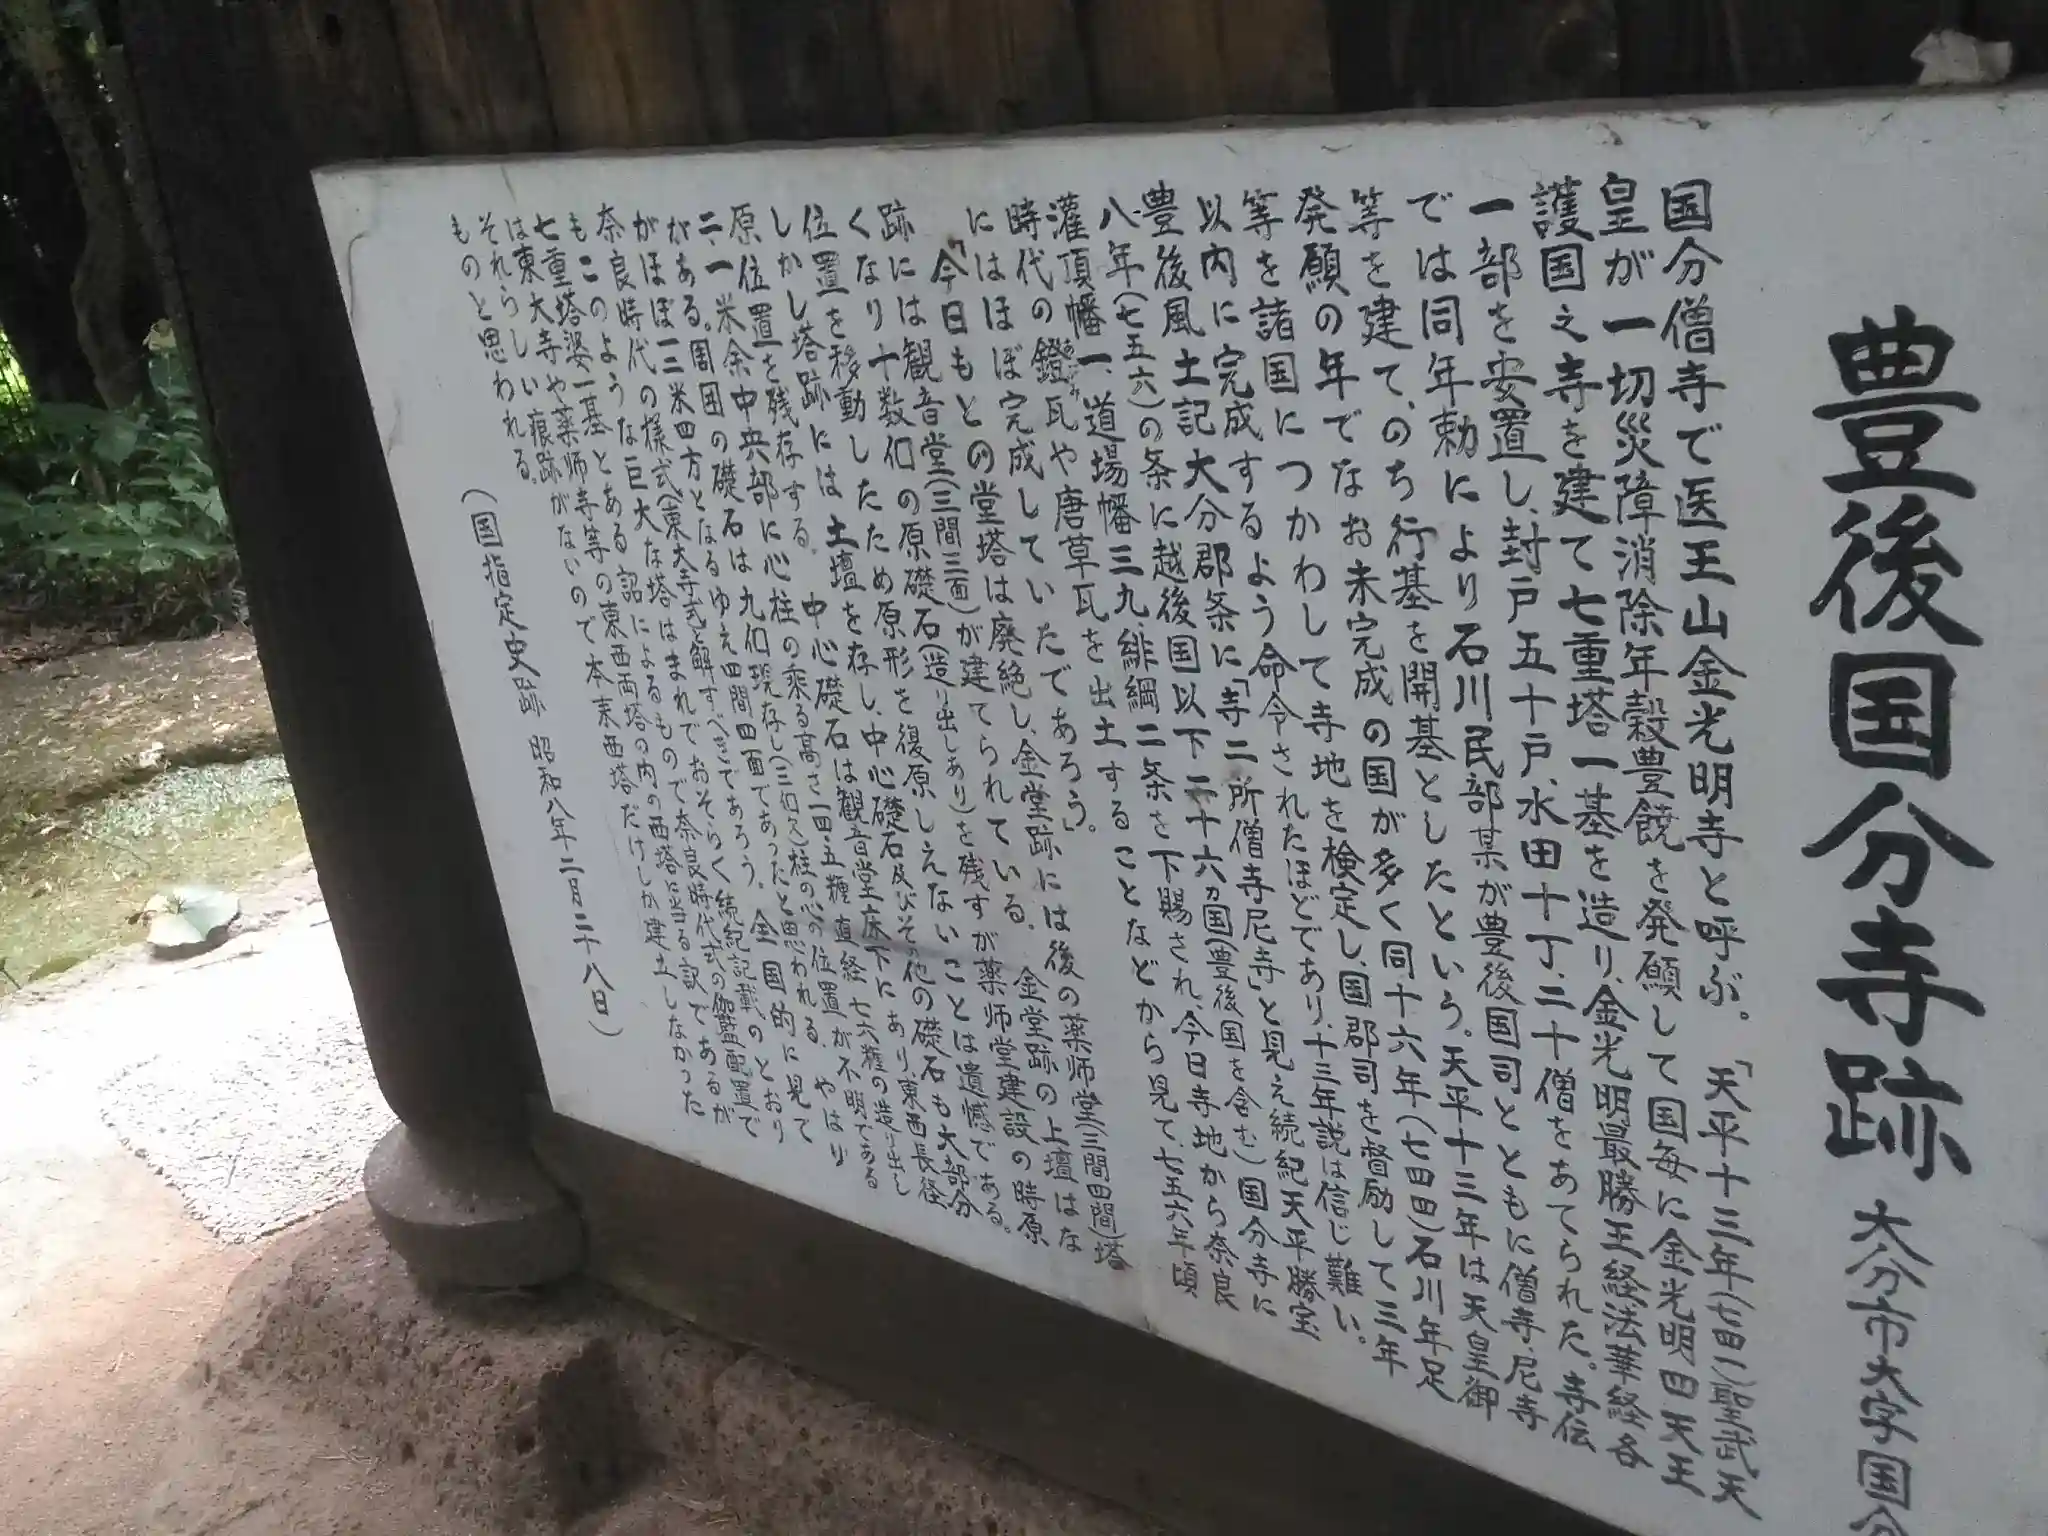 豊後国分寺跡 大分市大字国分
国分僧寺で医王山金光明寺と呼ぶ。「天平十三年(七四一)聖武天
皇が一切災障消除年穀豊饒を発願して国毎に金光明四天王
護国之寺を建て七重塔一基を造り、金光明最勝王経法華経各
一部を安置し、封戸五十戸、水田十丁、二十僧をあてられた。寺伝
では同年勅により石川民部某が豊後国司とともに僧寺、尼寺
等を建て、のち行基を開基としたという。天平十三年は天皇御
発願の年でなお未完成の国が多く同十六年(七四四)石川年足
等を諸国につかわして寺地を検定し、国郡司を督励して三年
以内に完成するよう命令されたほどであり、十三年説は信じ難い。
豊後風土記大分郡条に「寺二所僧寺尼寺」と見え続紀天平勝宝
八年(七五六)の条に越後国以下二十六ヵ国(豊後国を含む)国分寺に
灌頂幡一、道場幡三九、緋綱二条を下賜され、今日寺地から奈良
時代の鐙瓦や唐草瓦を出土することなどから見て、七五六年頃
にはほぼ完成していたであろう。
「今日もとの堂塔は廃絶し、金堂跡には後の薬師堂(三間四間)塔
跡には観音堂(三間三面)が建てられている。金堂跡の上壇はな
くなり十数個の原礎石(造り出しあり)を残すが薬師堂建設の時原
位置を移動したため原形を復原しえないことは遺憾である。
しかし塔跡には土壇を存し、中心礎石及びその他の礎石も大部分
原位置を残存する。中心礎石は観音堂床下にあり、東西長径
二、一米余中央部に心柱の乗る高さ一四五糎直経七六糎の造り出し
がある。周囲の礎石は九個現存し(三個欠)柱の心の位置が不明である
がほぼ一三米四方となるゆえ四間四面であったと思われる。やはり
奈良時代の様式(東大寺式)と解すべきであろう。全国的に見て
もこのような巨大な塔はまれでおそらく続紀記載のとおり
七重塔婆一基とある詔によるもので奈良時代式の伽藍配置で
は東大寺や薬師寺等の東西両塔の内の西塔に当る訳であるが
それらしい痕跡がないので本来西塔だけしか建立しなかった
ものと思われる。
(国指定史跡 昭和八年二月二十八日)